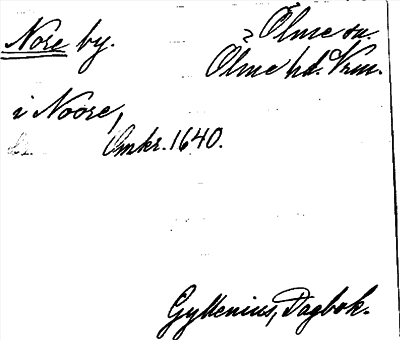 Nore by.
? Ölme sn.
Ölme hd. Vrm.
i Noore,
Omkr. 1640.
Gyllenius, Dagbok.